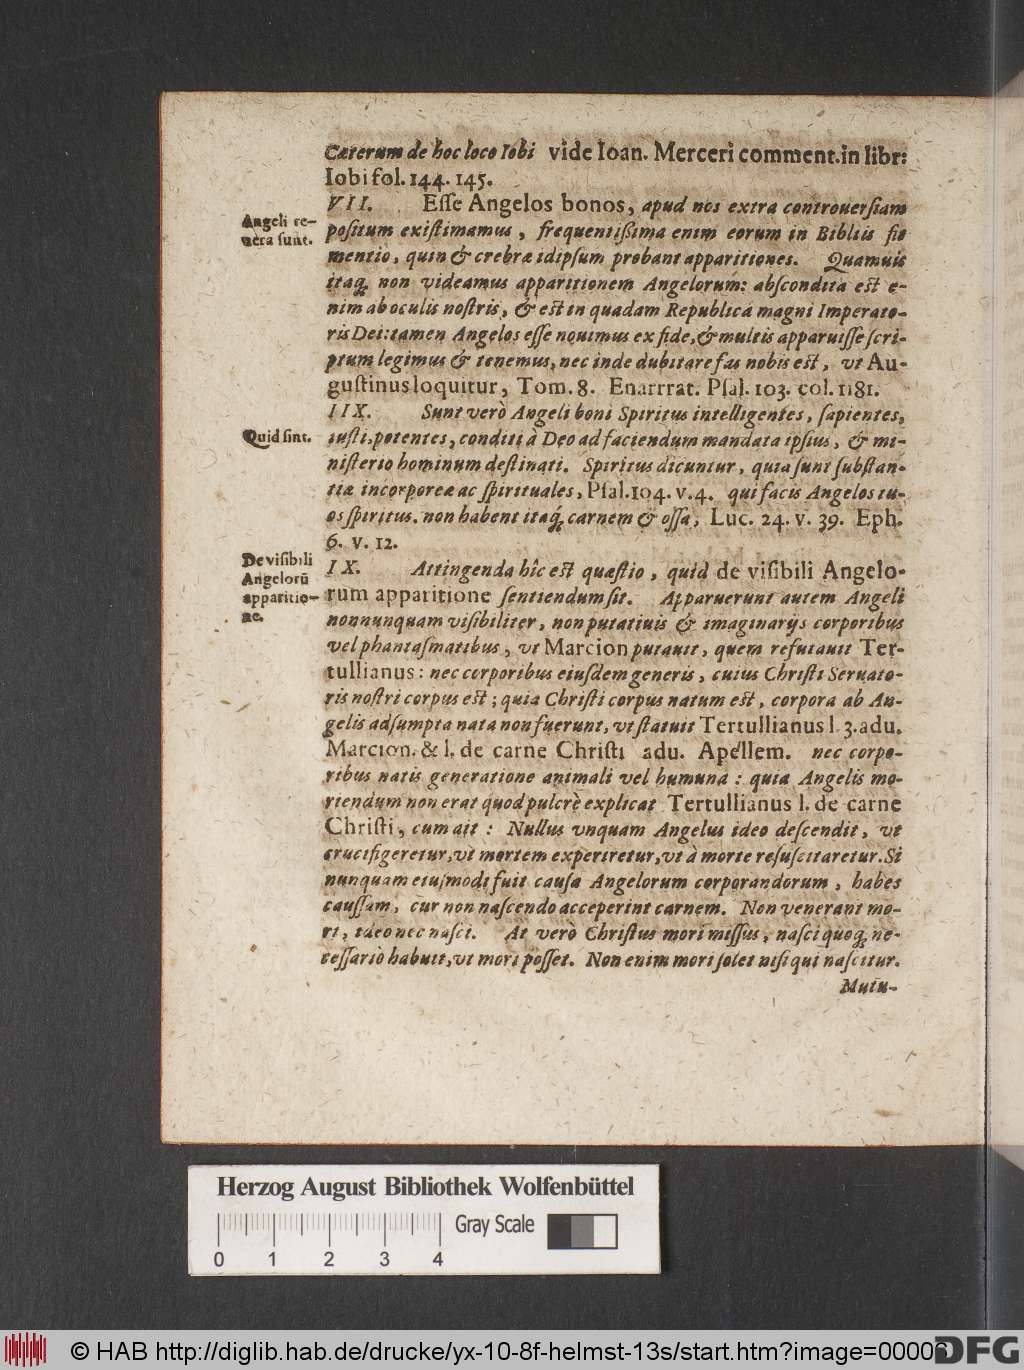 Cæterum de hoc loco Iobi vide Ioan. Merceri comment. in libr:
Iobi fol. 144. 145.
VII. Eſſe Angelos bonos, apud nos extra controuerſiam
Angeli re-
vera ſunt.
poſitum exiſtimamus, frequentißima enim eorum in Bibliis fit
mentio, quin & crebræ idipſum probant apparitiones. Quamuis
itaq; non videamus apparitionem Angelorum: abſcondita est e-
nim ab oculis noſtris, & est in quadam Republica magni Imperato-
ris Dei: tamen Angelos eſſe nouimus ex fide, & multis apparuiſſe ſcri-
ptum legimus & tenemus, nec inde dubitare fas nobis est, vt Au-
guſtinus loquitur, Tom. 8. Enarrrat. Pſal. 103. col. 1181.
IIX. Sunt verò Angeli boni Spiritus intelligentes, ſapientes,
Quid ſint.
iuſti, potentes, conditi à Deo ad faciendum mandata ipſius, & mi-
niſterio hominum deſtinati. Spiritus dicuntur, quia ſunt ſubſtan-
tiæ incorporeæ ac ſpirituales, Pſal. 104. v. 4. qui facis Angelos tu-
os ſpiritus. non habent itaq; carnem & oſſa, Luc. 24. v. 39. Eph.
6. v. 12.
De viſibili
Angelorū
apparitio-
ne.
IX. Attingenda hîc est quæſtio, quid de viſibili Angelo-
rum apparitione ſentiendum ſit. Apparuerunt autem Angeli
nonnunquam viſibiliter, non putatiuis & imaginarijs corporibus
vel phantaſmatibus, vt Marcion putauit, quem refutauit Ter-
tullianus: nec corporibus eiuſdem generis, cuius Chriſti Seruato-
ris noſtri corpus est; quia Chriſti corpus natum est, corpora ab An-
gelis adſumpta nata non fuerunt, vt ſtatuit Tertullianus l. 3. adu.
Marcion. & l. de carne Chriſti adu. Apellem. nec corpo-
ribus natis generatione animali vel humana: quia Angelis mo-
riendum non erat quod pulcrè explicat Tertullianus l. de carne
Chriſti, cum ait: Nullus vnquam Angelus ideo deſcendit, vt
crucifigeretur, vt mortem experiretur, vt à morte reſuſcitaretur. Si
nunquam eiuſmodi fuit cauſa Angelorum corporandorum, habes
cauſſam, cur non naſcendo acceperint carnem. Non venerant mo-
ri, ideo nec naſci. At verò Chriſtus mori miſſus, naſci quoq; ne-
ceſſariò habuit, vt mori poſſet. Non enim mori ſolet niſi qui naſcitur.
Mutu-
Herzog August Bibliothek Wolfenbüttel
Gray Scale
0 1 2 3 4
© HAB http://diglib.hab.de/drucke/yx-10-8f-helmst-13s/start.htm?image=00006
DFG